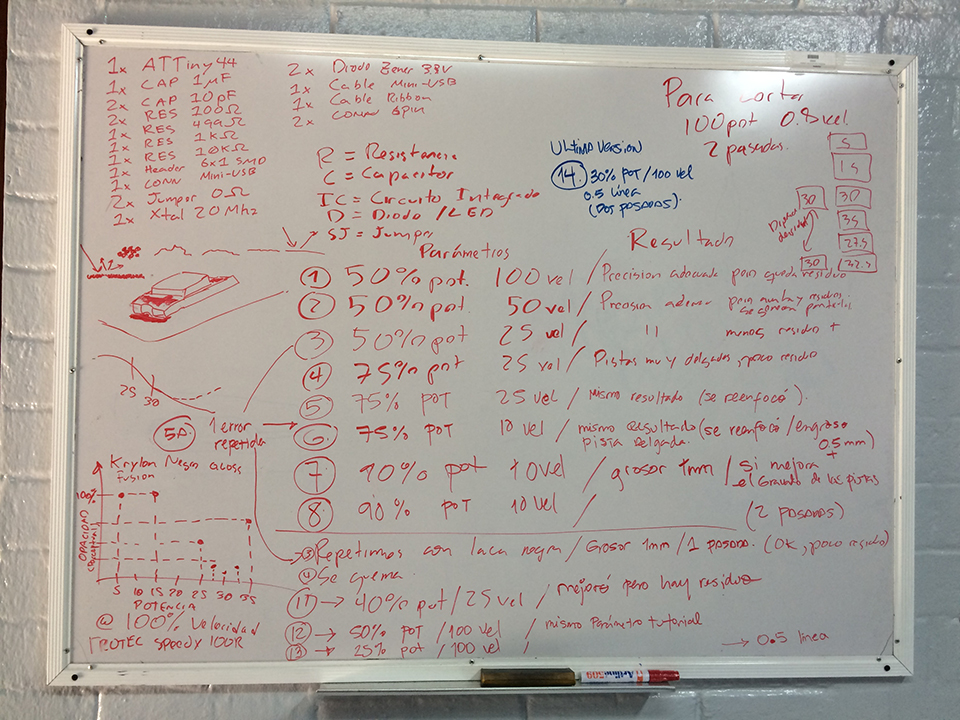 1x ATTiny 44
1x CAP 1µF
2x CAP 10pF
2x RES 100Ω
1x RES 499Ω
1x RES 1KΩ
1x RES 10KΩ
1x Header 6x1 SMD
1x CONN Mini-USB
2x Jumper 0Ω
1x Xtal 20 Mhz
2x Diodo Zener 3.3V
1x Cable Mini-USB
1x Cable Ribbon
2x CONN 6pin
R = Resistencia
C = Capacitor
IC = Circuito Integrado
D = Diodo / LED
SJ = Jumper
Para cortar
100 pot 0.8 vel.
2 pasadas.
ULTIMA VERSION
14. 30% POT/100 vel
0.5 línea
(DOS PASADAS).
5
15
30 30
35
27.5
30
Parámetros Resultado
1 50% pot. 100 vel / Precision adecuada pero queda residuo
2 50% pot 50 vel / Precision
3 50% pot 25 vel / 11 menos residuo +
4 75% pot 25 vel / Pistas muy delgadas, poco residuo
5 75% POT 25 vel / Mismo resultado (se reenfocó).
6 75% POT 10 vel / mismo resultado (se reenfocó / engroso
pista delgada. 0.5mm)
+
7 90% pot 10 vel / grosor 1mm / si mejora
el Grosor de las pistas
8 90% POT 10 Vel / (2 PASADAS)
25
30
5A 1 error
repetida
Krylon Negro
fusion
100%
OPACIDAD
5 10 15 20 25 30 35
POTENCIA
@ 100% Velocidad
TROTEC Speedy 100R
Repetimos con laca negra / Grosor 1mm / 1 PASADA. (OK, poco residuo)
Se quema
11 → 40% pot / 25 vel / mejoró pero hay residuo
12 → 50% POT / 100 vel / mismo Parámetro tutorial
13 → 25% pot / 100 vel /
→ 0.5 línea
Artline
509